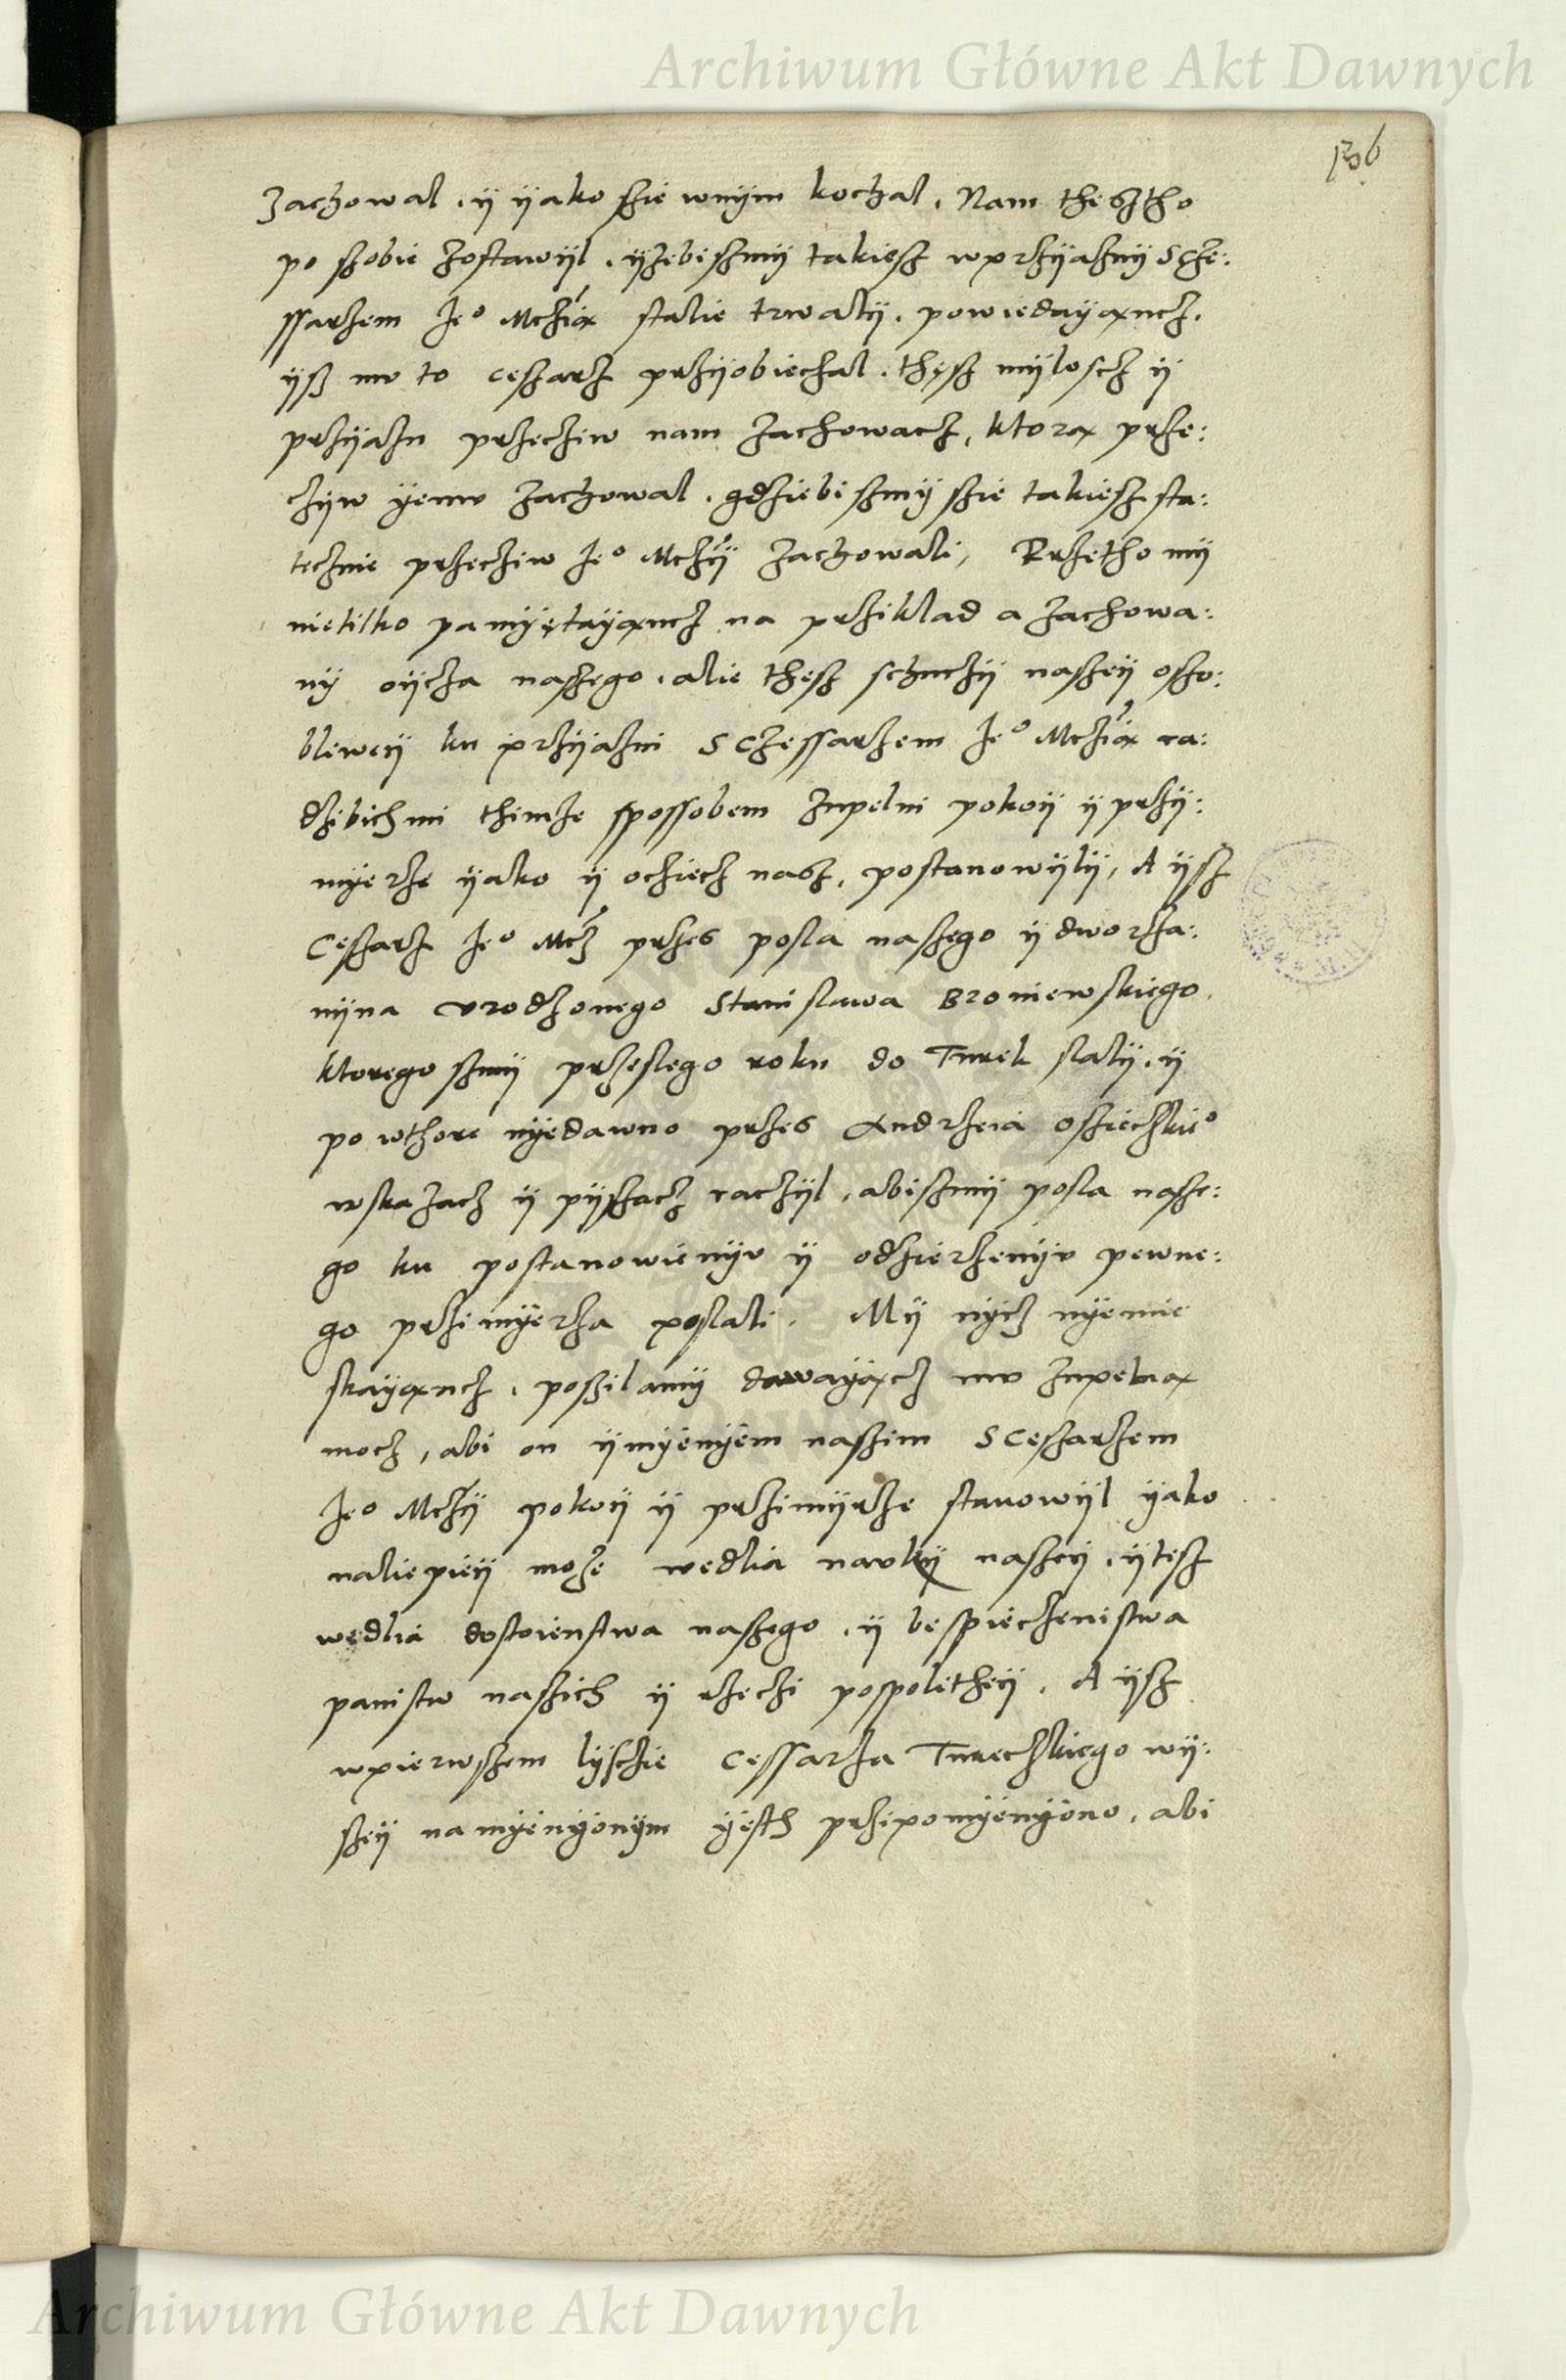 Archiwum Główne Akt Dawnych
136
zachowal . ÿ ÿako szie wnÿm kochal . Nam thesztho
po szobie zostawÿl . ÿzebiszmÿ takiesz wprzÿaznÿ Scze:
ssarzem Jeº Mczią stalie trwalÿ . powiedayąncz .
ÿsz mv to ceszarz przÿobiechal . thęsz mÿloscz ÿ
przÿazn przecziw nam zachowacz, ktorą prze:
czÿw ÿemv zachowal . gdziebiszmÿ szie takiesz sta:
tecznie przecziw Jeº Mczÿ zachowali, Przetho mÿ
nietilko pamÿętayąncz na prziklad a zachowa:
nÿ oÿcza naszego . alie thesz schuczÿ naszeÿ oszo:
bliweÿ ku przÿazni S Czessarzem Jeº Mczią ra:
dzibichmi thimze spossobem zupelni pokoÿ ÿ przÿ:
mÿerze ÿako ÿ ocziecz nasz, postanowÿlÿ, A ÿsz
Ceszarz Jeº Mcz przes posla naszego ÿ dworza:
nÿna vrodzonego Stanislawa Broniewskiego
ktorego szmÿ przeslego roku do Turek slalÿ . ÿ
powthore nÿedawno przes Andrzeia Oszieczkiº
wskazacz ÿ pÿszacz raczÿl . abiszmÿ posla nasze:
go ku postanowienÿv ÿ odzierzenÿv pewne:
go przimÿerza poslali . Mÿ nÿcz nÿemie
skayąncz . poszilamÿ dawayącz mv zupelną
mocz, abi on ÿmÿenÿem naszim S Ceszarzem
Jeº Mczÿ pokoÿ ÿ przimÿrze stanowÿl ÿako
naliepieÿ moze wedlia navkÿ naszeÿ . ÿ tesz
wedlia dostoienstwa naszego . ÿ bespieczenistwa
panistw naszich ÿ rzeczi pospolitheÿ . A ÿsz
wpierwszem lÿsczie Cessarza Tureczkiego wÿ:
szeÿ namÿenÿonÿm ÿesth przipomÿenÿono, abi
Archiwum Główne Akt Dawnych